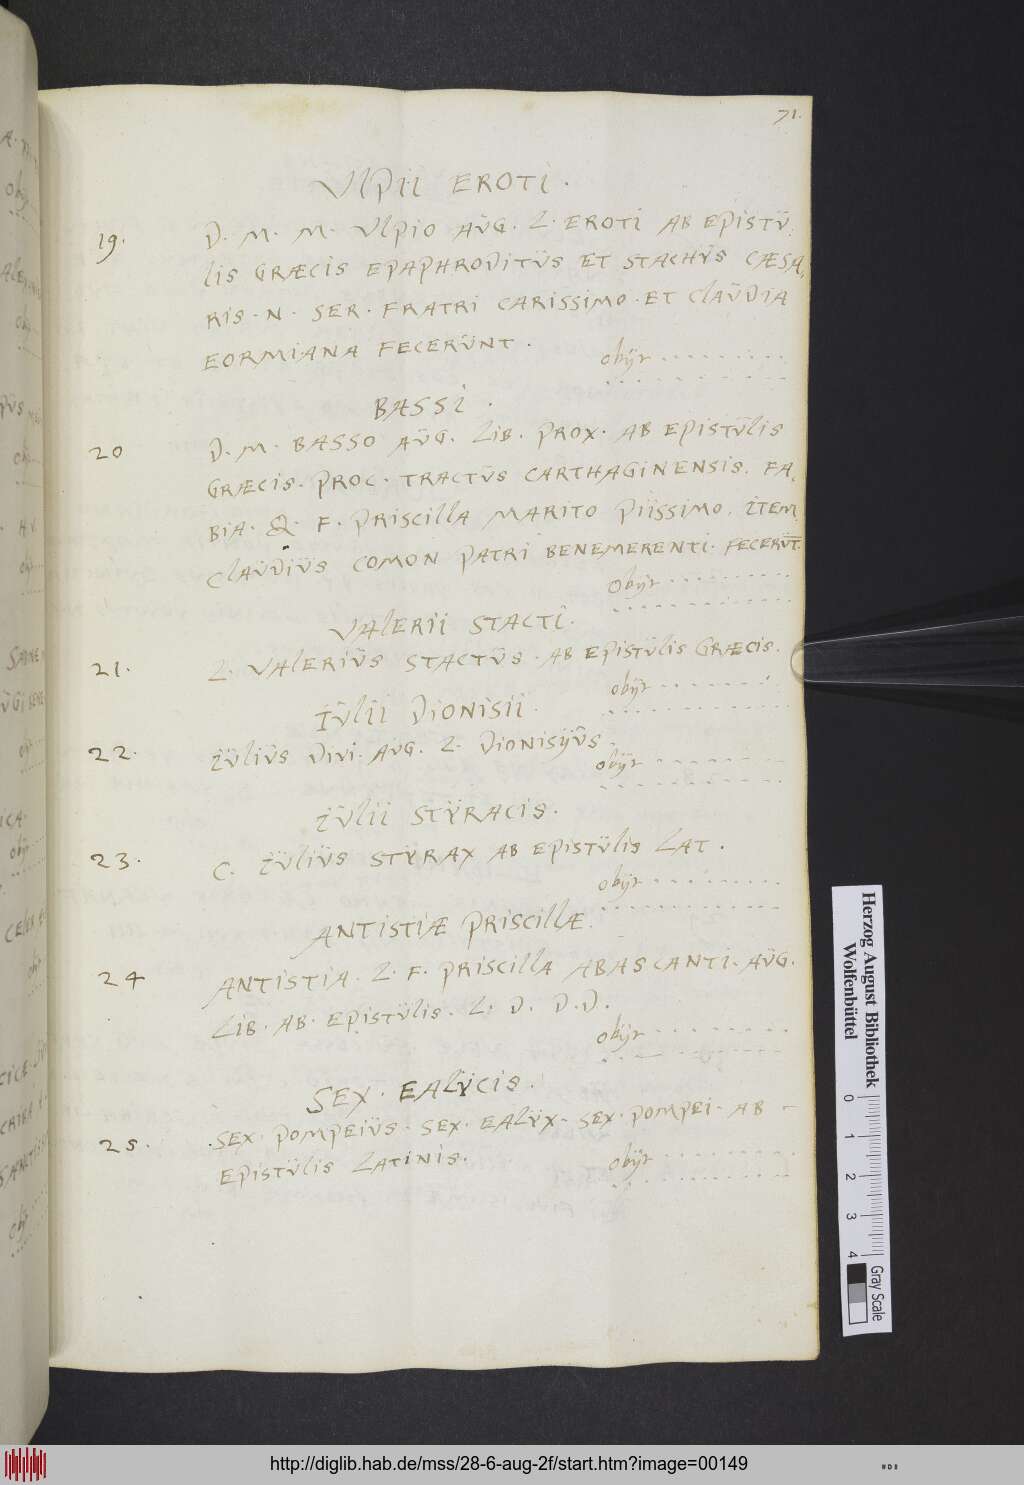 71.
VlPII EROTI.
19. D. M. M. VlPIO AŬG. L. EROTI AB EPISTŬ:
lIS GRÆCIS EPAPHRODITŬS ET STACHŸS CÆSA,
RIS. N. SER. FRATRI CARISSIMO. ET ClAŬDIA
EORMIANA FECERŬNT.
obijt ........
........
BASSI.
20 D. M. BASSO AŬG. LIB. PROX. AB EPISTŬlIS
GRÆCIS. PROC. TRACTŬS CARTHAGINENSIS. FA,
BIA. Q. F. PRISCIllA MARITO PIISSIMO. ITEM
ClAŬDIŬS COMON PATRI BENEMERENTI. FECERŪT.
obijt ........
........
VAlERII STACTI.
21. L. VAlERIŬS STACTŬS. AB EPISTŬlIS GRÆCIS.
obijt ........
........
IŬlII DIONISII.
22. IŬlIŬS DIVI. AŬG. L. DIONISIJŬS.
obijt ........
........
IŬlII STŸRACIS.
23. C. IŬlIŬS STŸRAX AB EPISTŬlIS LAT.
obijt ........
........
ANTISTIÆ PRISCIllÆ.
24 ANTISTIA. L. F. PRISCIllA ABASCANTI. AŬG.
LIB. AB. EPISTŬlIS. L. D. D.D.
obijt ........
........
SEX. EAlŸCIS.
25. SEX. POMPEIŬS. SEX. EAlŸX. SEX. POMPEI. AB -
EPISTŬlIS LATINIS.
obijt ........
........
Herzog August Bibliothek
Wolfenbüttel
0 1 2 3 4
Gray Scale
http://diglib.hab.de/mss/28-6-aug-2f/start.htm?image=00149